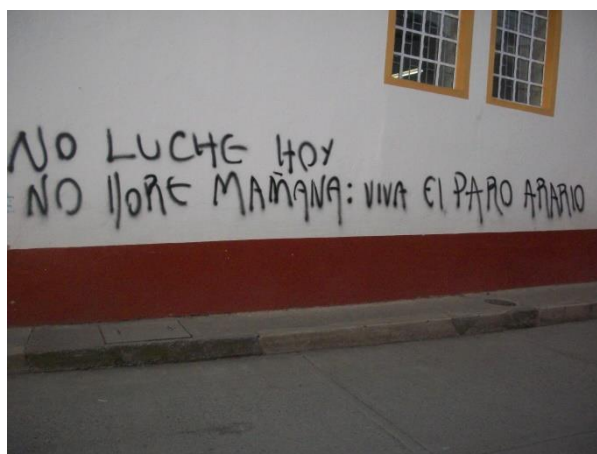 NO LUCHE HOY
NO llORE MAÑANA: VIVA El PARO ARARIO